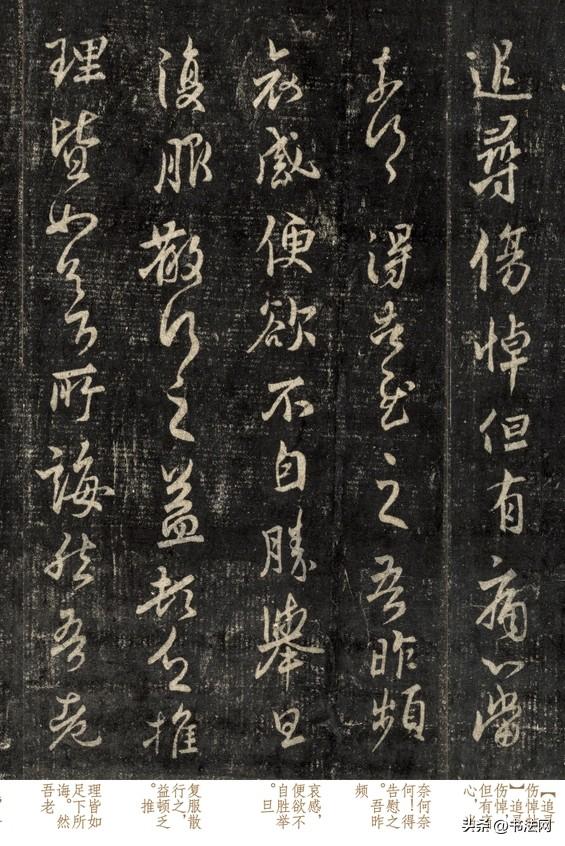 追尋傷悼但有痛心當
奈何 得告慰之吾昨頻
哀感便欲不自勝舉旦
復服散行之益頓乏推
理皆如足下所誨然吾老
【追
伤悼
】追
伤悼，
但有
心，
奈何奈
何！得
告慰之
。吾昨
频
哀感，
便欲不
自胜举
。旦
复服散
行之，
益顿乏
。推
理皆如
足下所
诲。然
吾老
头条 @书法网